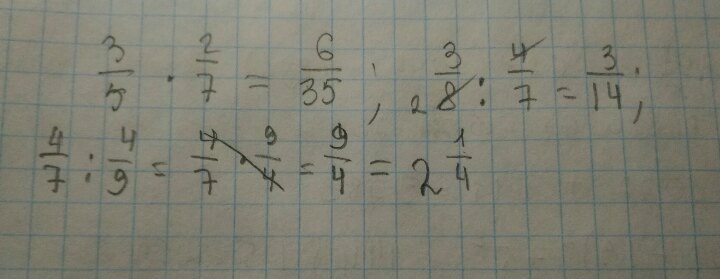 3/5 · 2/7 = 6/35; 2 3/8 : 4/7 = 3/14;
4/7 : 4/9 = 4/7 · 9/4 = 9/4 = 2 1/4